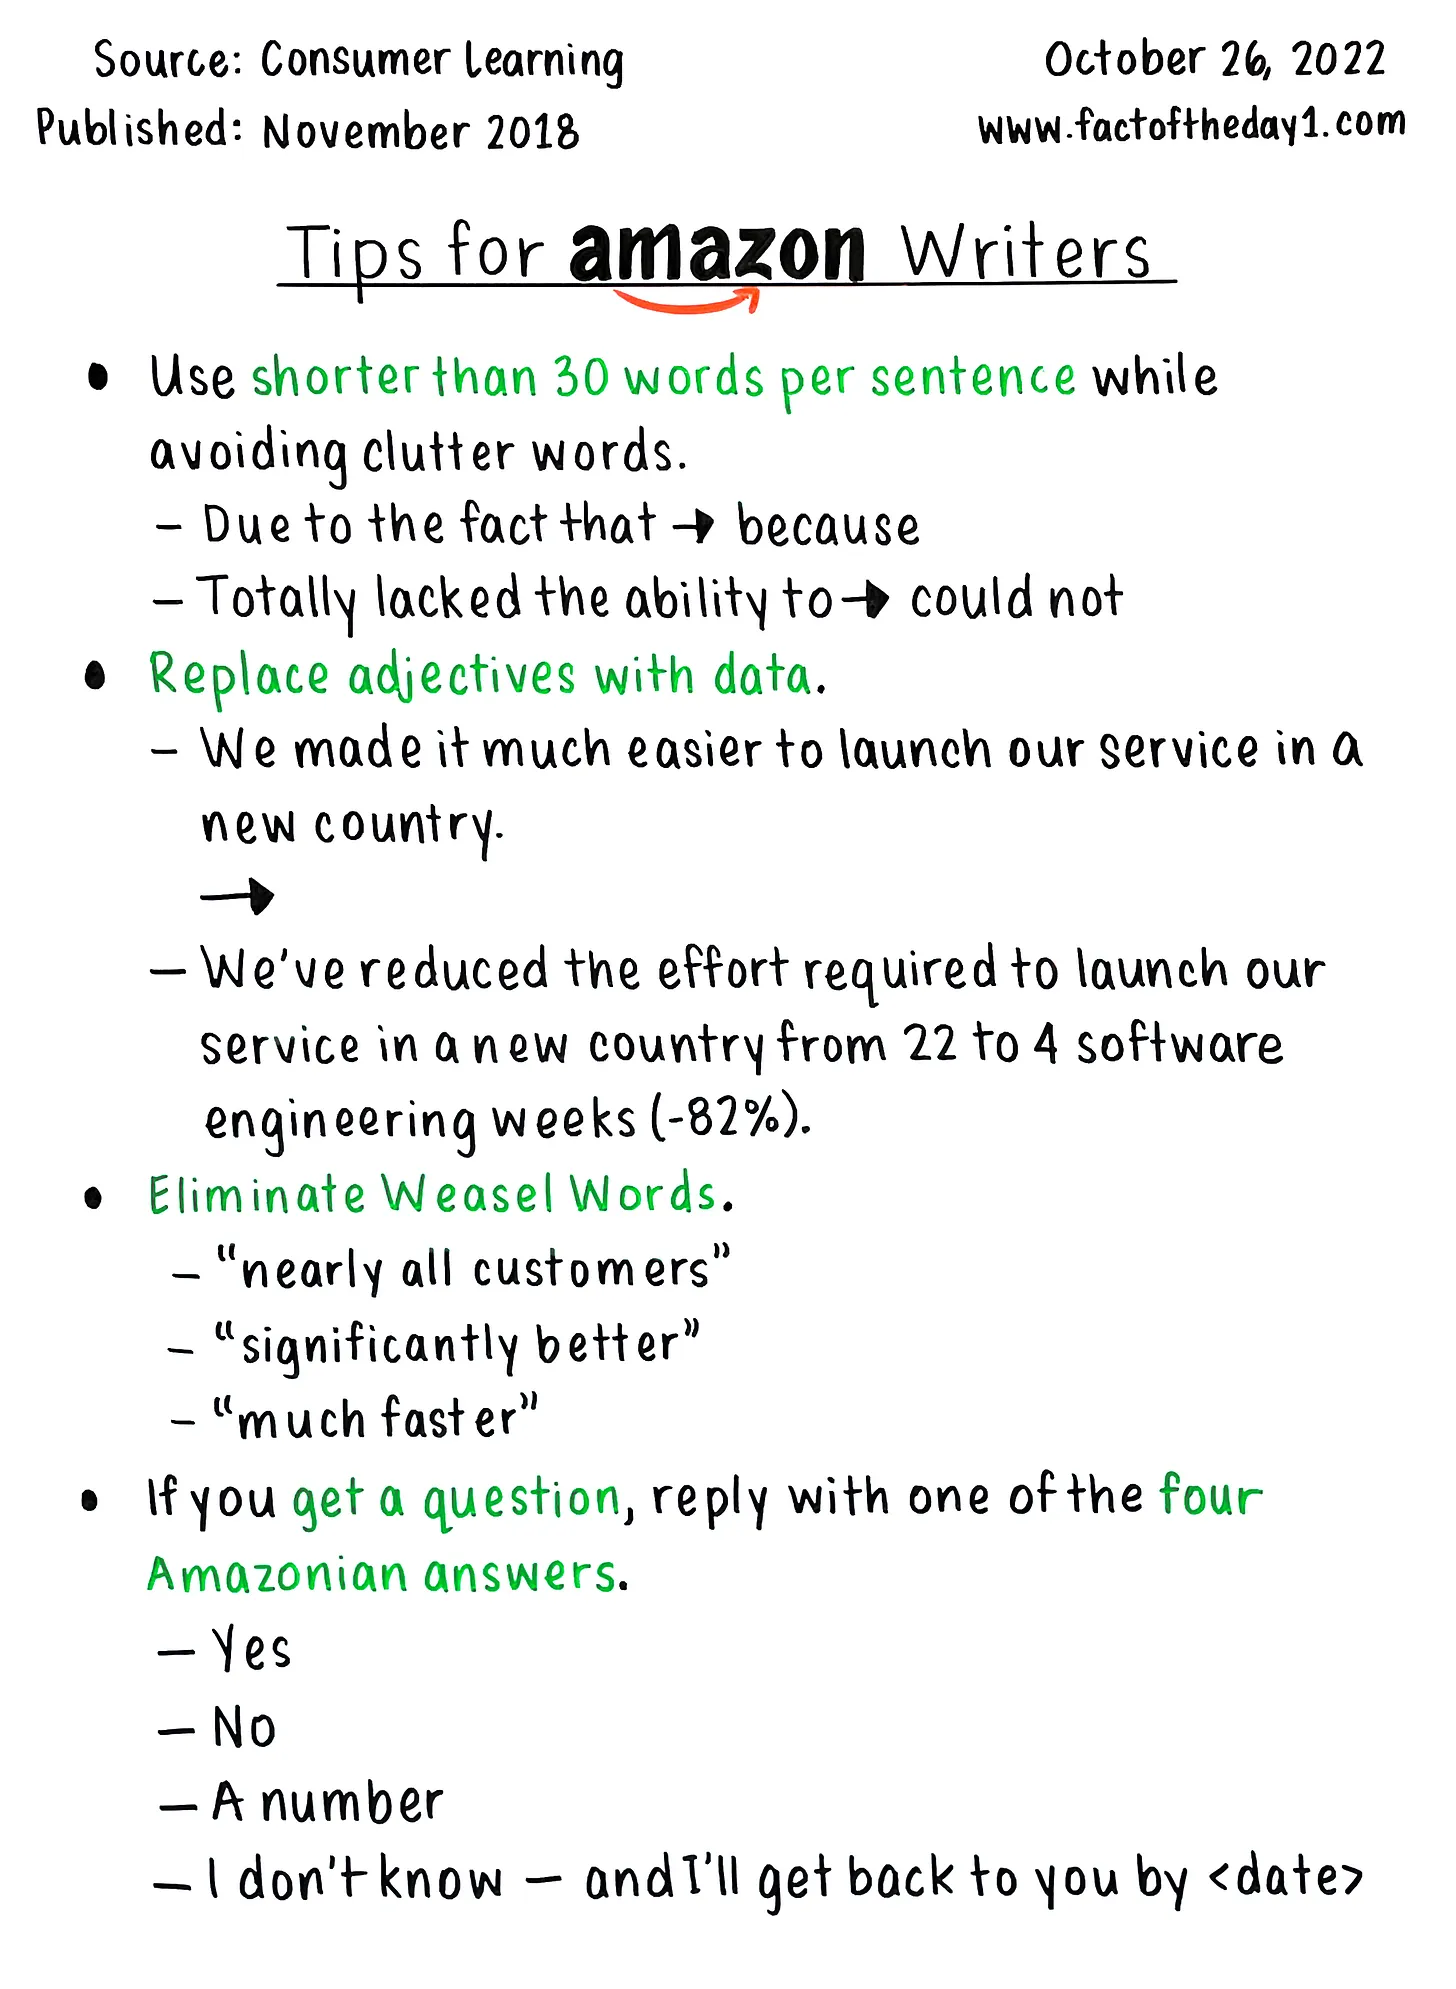 Source: Consumer Learning
October 26, 2022
Published: November 2018
www.factoftheday1.com
Tips for amazon Writers
• Use shorter than 30 words per sentence while
avoiding clutter words.
- Due to the fact that → because
- Totally lacked the ability to → could not
• Replace adjectives with data.
- We made it much easier to launch our service in a
new country.
→
- We've reduced the effort required to launch our
service in a new country from 22 to 4 software
engineering weeks (-82%).
• Eliminate Weasel Words.
- “nearly all customers”
- “significantly better”
- “much faster”
• If you get a question, reply with one of the four
Amazonian answers.
- Yes
- No
- A number
- I don't know - and I'll get back to you by <date>